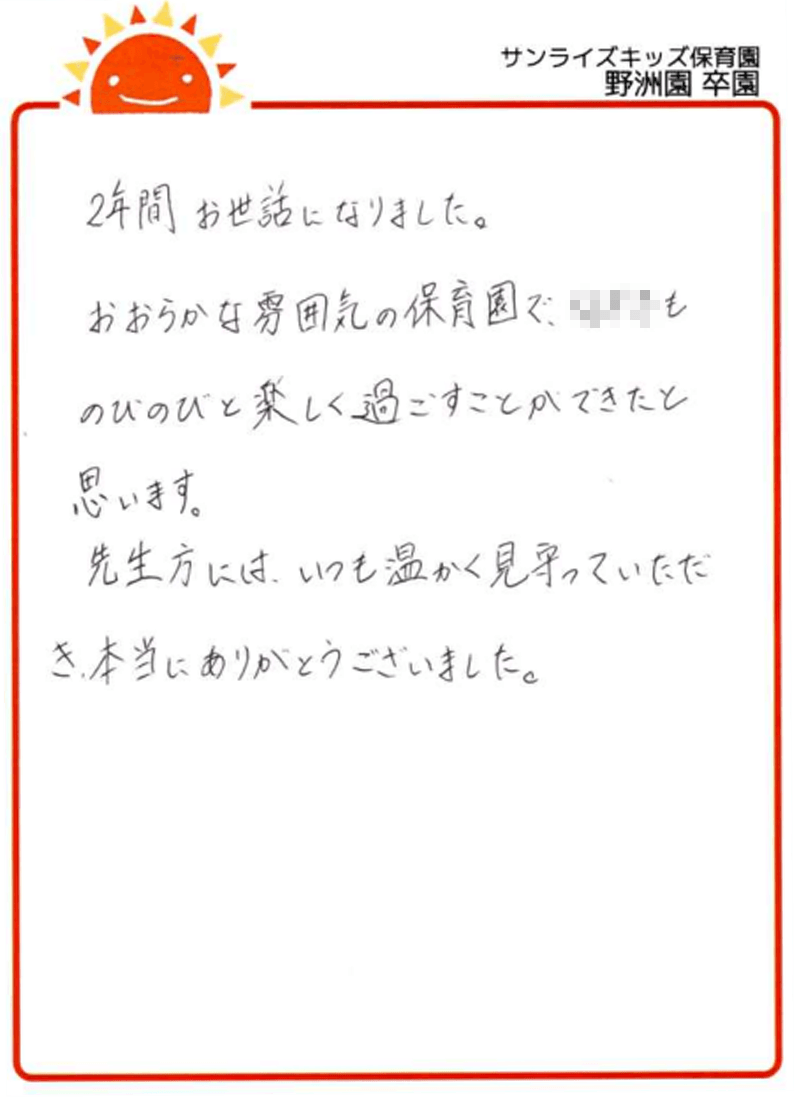 サンライズキッズ保育園
野洲園 卒園
2年間 お世話になりました。
おおらかな雰囲気の保育園で、も
のびのびと楽しく過ごすことができたと
思います。
先生方には、いつも温かく見守っていただ
き、本当にありがとうございました。